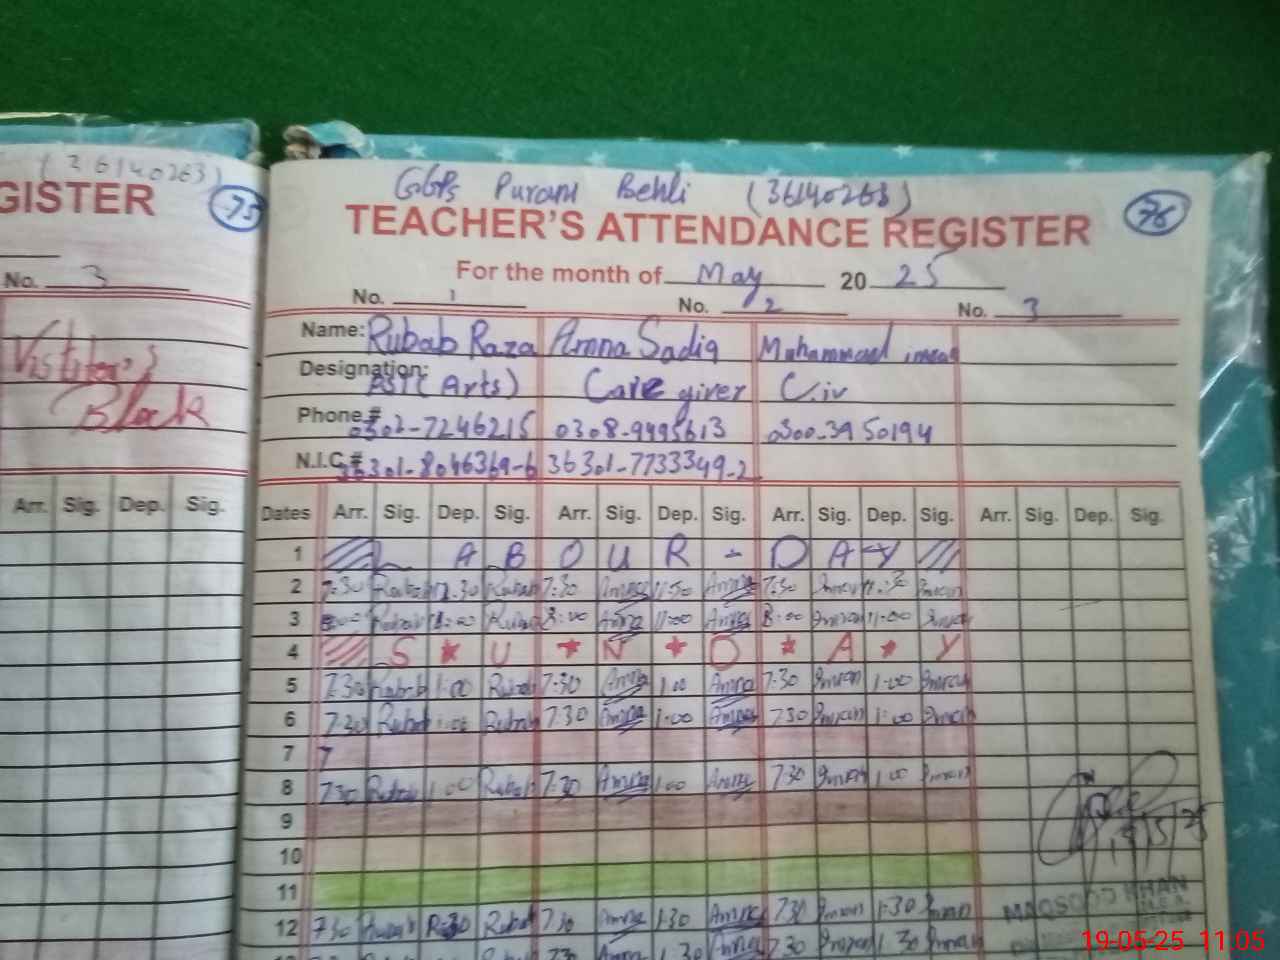 (36140263)
GISTER 75
No. 3
Vistitor's
Block
Arr. Sig. Dep. Sig.
GGPS Purani Behli (36140263)
TEACHER'S ATTENDANCE REGISTER 76
For the month of May 2025
No. 1 No. 2 No. 3
Name: Rubab Raza Amna Sadiq Muhammad imran
Designation: EST (Arts) Care giver C.iv
Phone # 0302-7246215 0308-9495613 0300-3950194
N.I.C # 36301-8046369-6 36301-7733349-2
Dates Arr. Sig. Dep. Sig. Arr. Sig. Dep. Sig. Arr. Sig. Dep. Sig. Arr. Sig. Dep. Sig.
1 L A B O U R - D A Y
2 7:30 Rubab 11.30 Rubab 7:30 Amna 11:30 Amna 7:30 Imran 11:30 Imran
3 8:00 Rubab 11:00 Rubab 8:00 Amna 11:00 Amna 8:00 Imran 11:00 Imran
4 S * U * N * D * A * Y
5 7:30 Rubab 1:00 Rubab 7:30 Amna 1:00 Amna 7:30 Imran 1:00 Imran
6 7:30 Rubab 1:00 Rubab 7:30 Amna 1:00 Amna 730 Imran 1:00 Imran
7 7
8 730 Rubab 1:00 Rubab 7:30 Amna 1:00 Amna 730 Imran 1:00 Imran
9
10
11
12 730 Rubab 1:30 Rubab 730 Amna 1:30 Amna 730 Imran 1:30 Imran
19/5/25
MAQSOOD KHAN
19-05-25 11.05